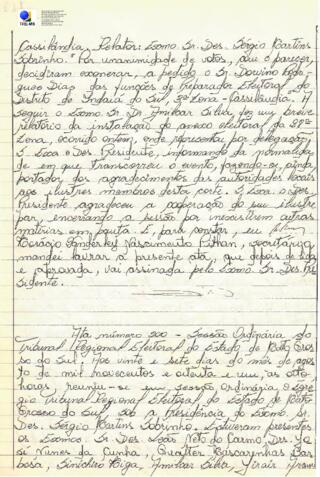 Cassilândia. Relator: Exmo Sr. Des. Sérgio Martins
Sobrinho. "Por unanimidade de votos, com o parecer,
decidiram exonerar, a pedido o Sr. Dourino Rodri-
gues Dias das funções de Preparador Eleitoral do
Distrito de Indaiá do Sul, 3ª Zona - Cassilândia". A
seguir o Exmo Sr. Dr. Amilcar Silva, fez um breve
relatório da instalação do anexo eleitoral da
Zona, ocorrido ontem, onde representou por delegação
S. Exa o Des. Presidente, informando da normalida-
de em que transcorreu o evento, fazendo-se, ainda,
portador dos agradecimentos das autoridades locais
aos ilustres membros desta corte. S. Exa. o Des.
Presidente agradeceu a cooperação do seu ilustre
par, encerrando a sessão por inexistirem outras
matérias em pauta. E, para constar, eu
Nascimento secretário,
mandei lavrar a presente ata, que depois de lida
e aprovada, vai assinada pelo Exmo Sr. Des. Pre-
sidente.
Ata número 500 - Sessão Ordinária do
Tribunal Regional Eleitoral do Estado de Mato Gros-
so do Sul. Aos vinte e sete dias do mês de agos-
to de mil novecentos e oitenta e um, às oito
horas, reuniu-se em sessão ordinária o Egré-
gio Tribunal Regional Eleitoral do Estado de Mato
Grosso do Sul, sob a Presidência do Exmo. Sr.
Des. Sérgio Martins Sobrinho. Estiveram presentes
os Exmos. Sr. Des. Leão Neto do Carmo, Drs. Jo-
sé Nunes da Cunha, Gualter Mascarenhas Bar-
bosa, Amilcar Silva,